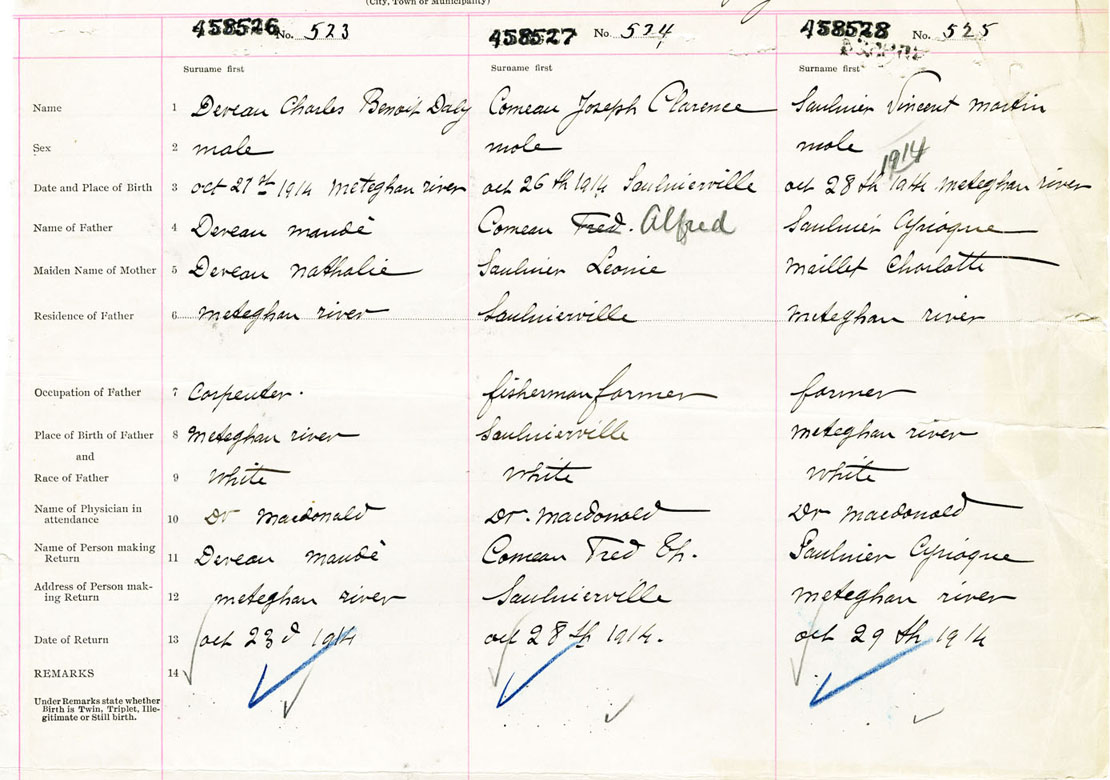 (City, Town or Municipality)
458526 No. 523 458527 No 524 458528 No. 525
Surname first Surname first Surname first
Name 1 Deveau Charles Benoit Daly Comeau Joseph Clarence Saulnier Vincent Martin
Sex 2 male male male
1914
Date and Place of Birth 3 oct 21st 1914 Meteghan river oct 26th 1914 Saulnierville oct 28th 1914 Meteghan river
Name of Father 4 Deveau Mandé Comeau Fred. Alfred Saulnier Cyriaque
Maiden Name of Mother 5 Deveau Nathalie Saulnier Leonie Maillet Charlotte
Residence of Father 6 Meteghan river Saulnierville Meteghan river
Occupation of Father 7 Carpenter. fisherman farmer farmer
Place of Birth of Father 8 Meteghan river Saulnierville Meteghan river
and
Race of Father 9 White White White
Name of Physician in
attendance 10 Dr Macdonald Dr. Macdonald Dr Macdonald
Name of Person making
Return 11 Deveau Mandé Comeau Fred Saulnier Cyriaque
Address of Person mak-
ing Return 12 Meteghan river Saulnierville Meteghan river
Date of Return 13 oct 23d 1914 oct 28th 1914. oct 29th 1914
REMARKS 14
Under Remarks state whether
Birth is Twin, Triplet, Ille-
gitimate or Still birth.